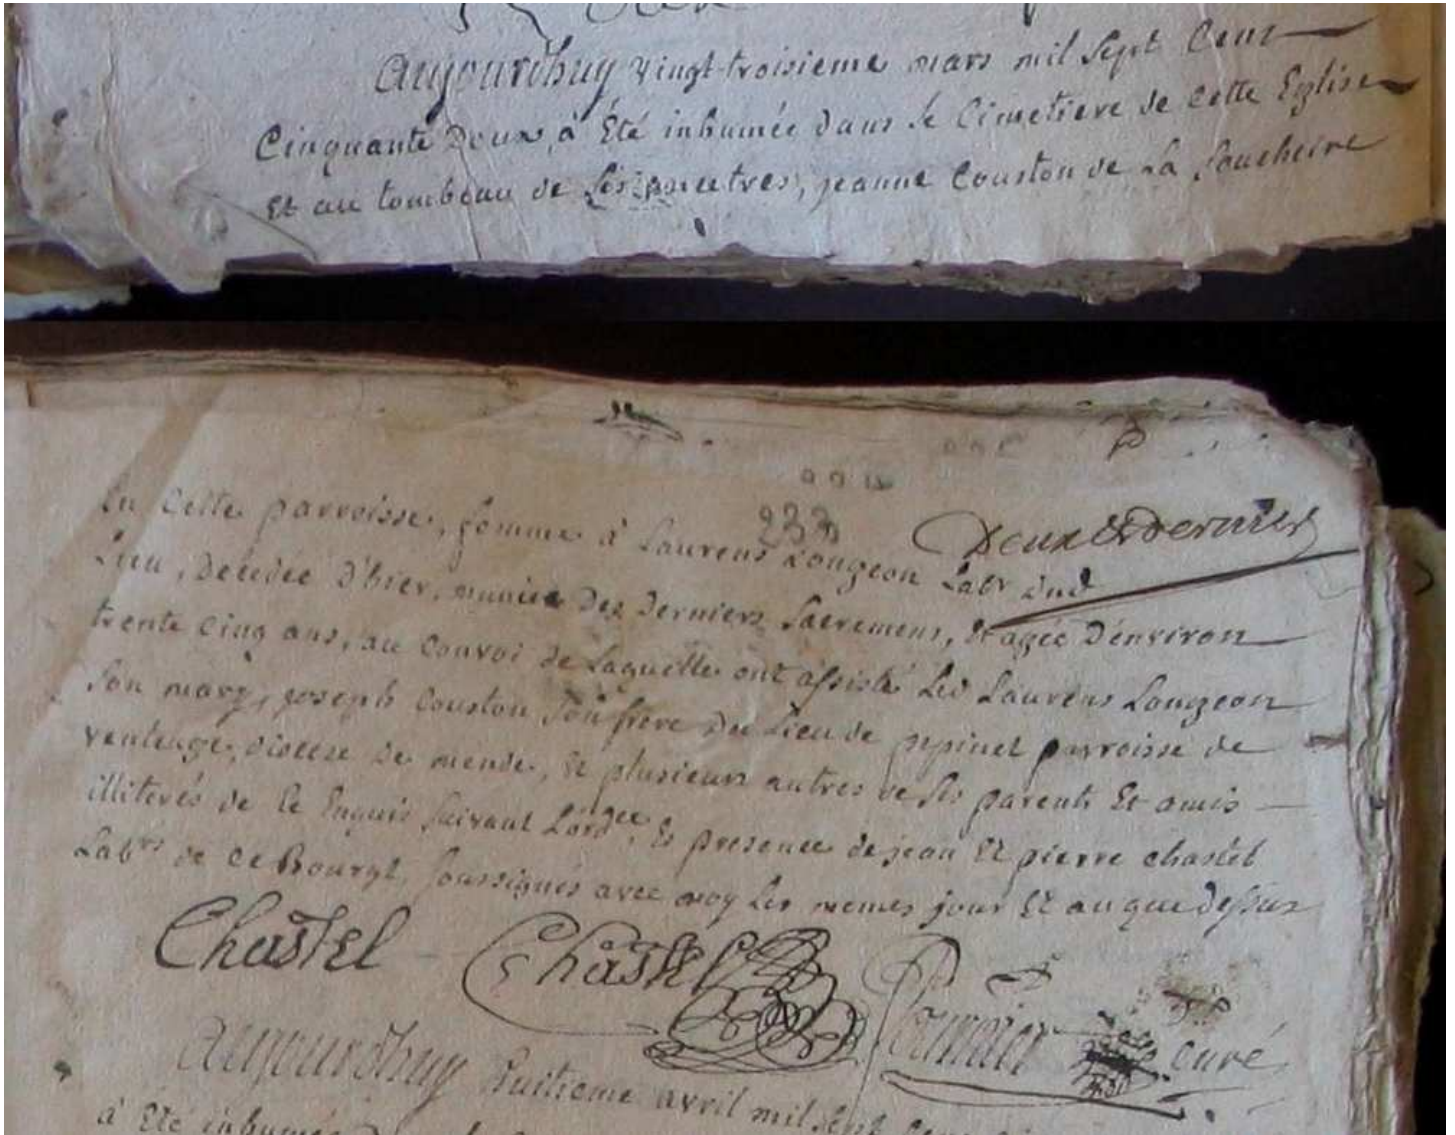 aujourdhuy vingt-troisieme mars mil sept Cent
Cinquante Deux, à Été inhumée dans le Cimetiere de Cette Eglise
Et au tombeau de ses ancetres, jeanne Couston de La Soucheire
233
Deux & dernier
En Cette parroisse, femme à Laurens Longeon Labr dud
Lieu, decedée d'hier, munie des derniers Sacremens, Et agée d'environ
trente Cinq ans, au Convoi de Laquelle ont assisté Led Laurens Longeon
Son mary, joseph Couston Son frere du Lieu de pepinet parroisse de
venteuge, diocese de mende, & plusieurs autres de ses parents Et amis
illiterés de Ce Enquis suivant L'ordce, Es presence de jean Et pierre chastel
Labrs de Ce Bourgt, soussignés avec moy Les memes jour Et an que dessus
Chastel Chastel Fournier curé
aujourdhuy huitieme avril mil sept Cent
à Été inhumée